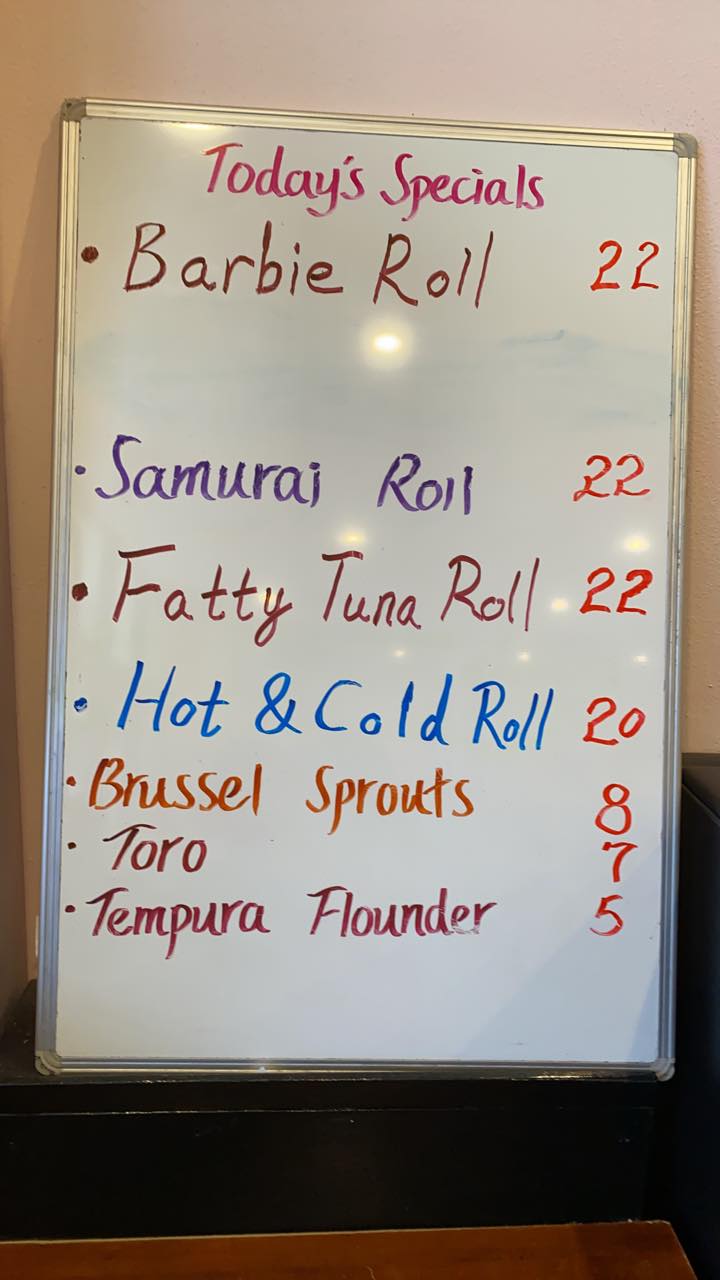 Today's Specials
• Barbie Roll 22
• Samurai Roll 22
• Fatty Tuna Roll 22
• Hot & Cold Roll 20
• Brussel Sprouts 8
• Toro 7
• Tempura Flounder 5